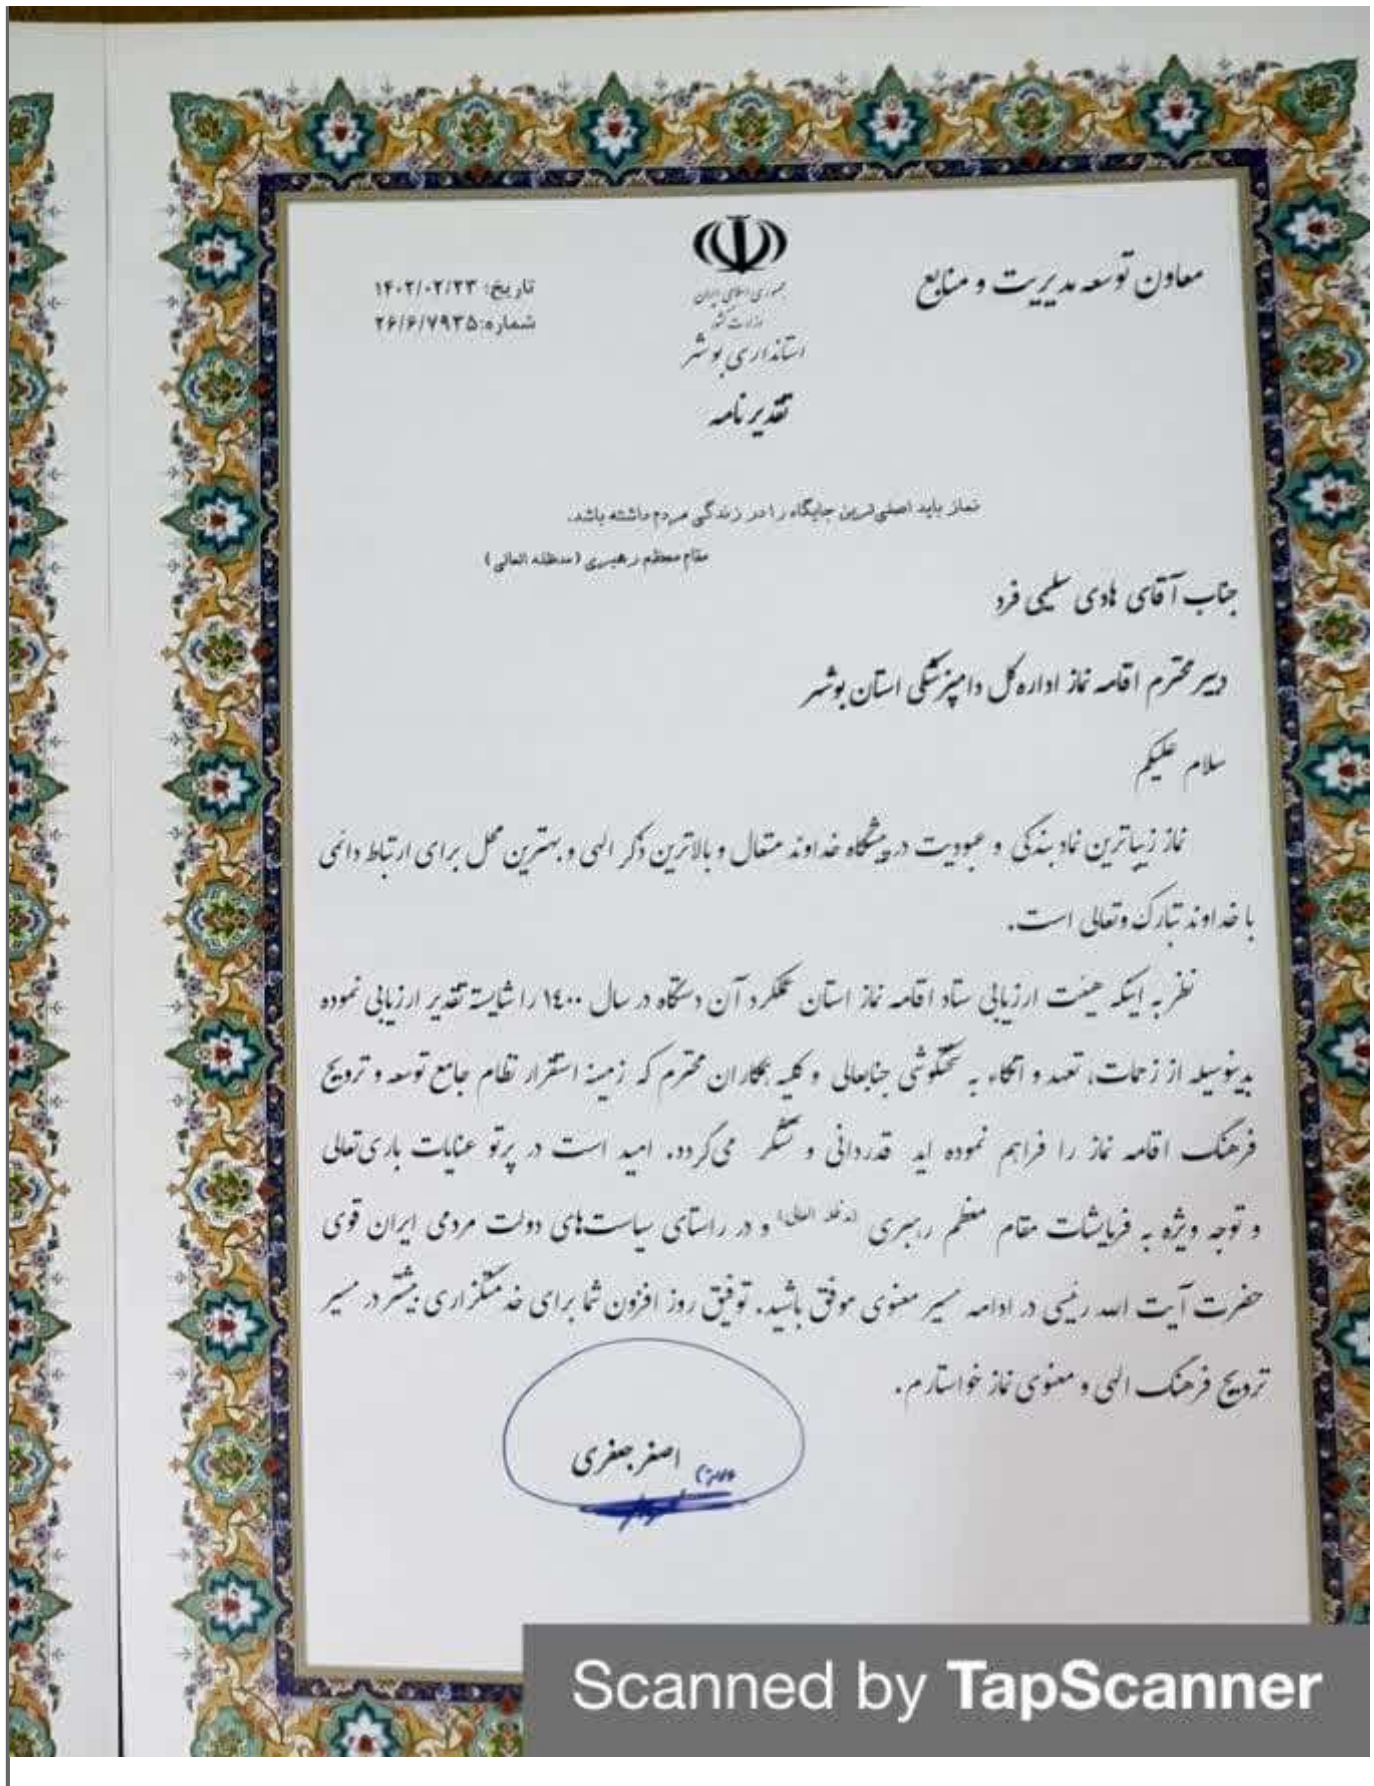 معاون توسعه مدیریت و منابع
جمهوری اسلامی ایران
وزارت کشور
استانداری بوشهر
تقدیرنامه
تاریخ: ۱۴۰۲/۰۲/۲۳
شماره: ۲۶/۶/۷۹۳۵
نماز باید اصلی‌ترین جایگاه را در زندگی مردم داشته باشد.
مقام معظم رهبری (مدظله العالی)
جناب آقای هادی سلیمی فرد
دبیر محترم اقامه نماز اداره کل دامپزشکی استان بوشهر
سلام علیکم
نماز زیباترین نماد بندگی و عبودیت در پیشگاه خداوند متعال و بالاترین ذکر الهی و بهترین محل برای ارتباط دائمی
با خداوند تبارک وتعالی است.
نظر به اینکه هیئت ارزیابی ستاد اقامه نماز استان عملکرد آن دستگاه در سال ۱۴۰۰ را شایسته تقدیر ارزیابی نموده
بدینوسیله از زحمات، تعهد و اتکاء به سختکوشی جنابعالی و کلیه همکاران محترم که زمینه استقرار نظام جامع توسعه و ترویج
فرهنگ اقامه نماز را فراهم نموده اید قدردانی و تشکر می‌گردد. امید است در پرتو عنایات باری‌تعالی
و توجه ویژه به فرمایشات مقام معظم رهبری (مدظله العالی) و در راستای سیاست‌های دولت مردمی ایران قوی
حضرت آیت الله رئیسی در ادامه مسیر معنوی موفق باشید. توفیق روز افزون شما برای خدمتگزاری بیشتر در مسیر
ترویج فرهنگ الهی و معنوی نماز خواستارم.
اصغر جعفری
Scanned by TapScanner